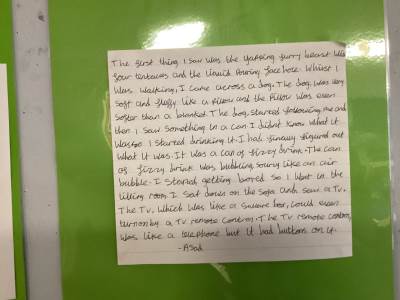 The first thing I saw was the yapping furry beast with
four tentacles and the liquid pouring face hole. Whilst I
was walking, I came across a dog. The dog was very
soft and fluffy like a pillow and the pillow was even
softer than a blanket. The dog started following me and
then I saw something in a can I didnt know what it
was so I started drinking it. I had finally figured out
what it was. It was a can of fizzy drink. The can
of fizzy drink was bubbling sourly like an air
bubble. I started getting bored so I went in the
living room I sat down on the sofa and saw a Tv.
The Tv. Which was like a square box, could even
turn on by a Tv remote control. The Tv remote control
was like a telephone but it had buttons on it.
-Asad